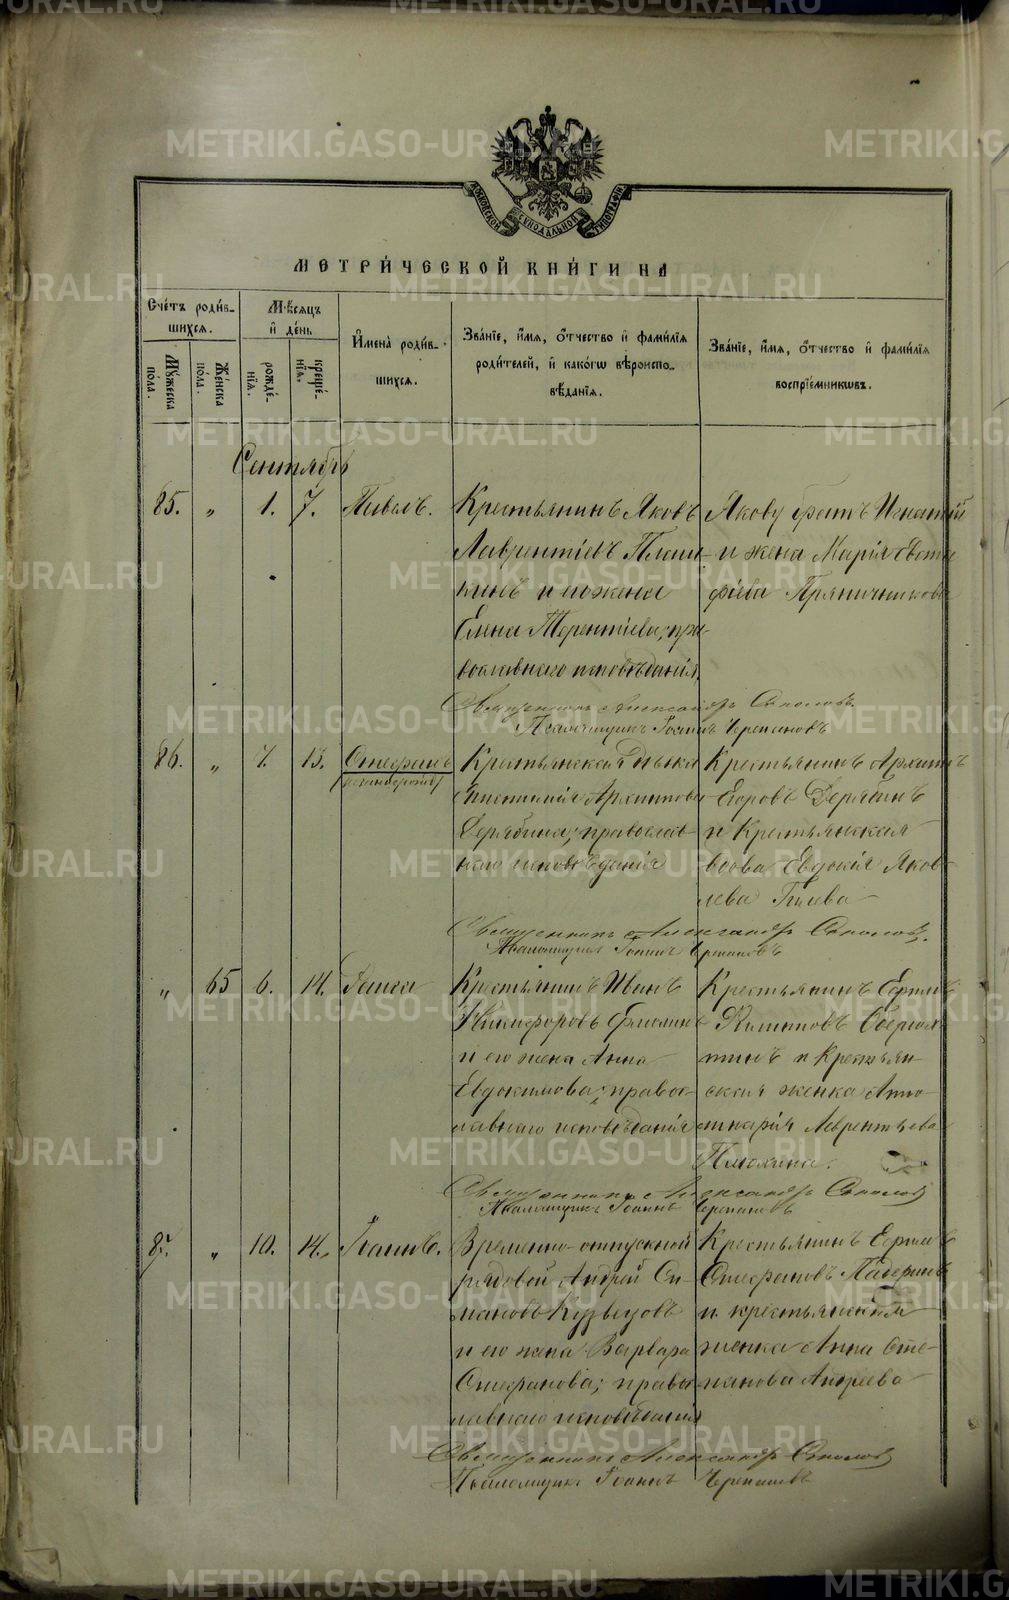 МОСКОВСКОЙ СѴНОДАЛЬНОЙ ТИПОГРАФІИ
МЕТРИ́ЧЕСКОЙ КНИ́ГИ НА
Сче́тъ роди́в-
шихся.
Мѣ́сяцъ
и҆ де́нь
Мꙋ́жеска по́ла.
Же́нска по́ла.
рожде́-нїѧ.
креще́-нїѧ.
И҆мена̀ роди́в-
шихся.
Зва́нїе, и҆́мя, ѻ҆́тчество и҆ фами́лїя
роди́телей, и҆ како́гѡ вѣроиспо-
вѣ́данїя.
Зва́нїе, и҆́мя, ѻ҆́тчество и҆ фами́лїя
воспрїе́мникѡвъ.
Сентябрь
85. „ 1. 7. Павелъ.
Крестьянинъ Яковъ
Лаврентіевъ
кинъ и его жена
Елена Терентіева; пра-
вославнаго исповѣданія.
Якову братъ Игнатій
и жена Марія
Пряничникова
Священникъ Александръ Соколовъ.
Псаломщикъ Іоаннъ Черепановъ
86. „ 7. 13. Стефанъ
Крестьянская дѣвка
Архиппова
Дерябина; православ-
наго исповѣданія
Крестьянинъ Архиппъ
Егоровъ Дерябинъ
и Крестьянская
вдова Евдокія Яков-
лева Гилева
Священникъ Александръ Соколовъ.
Псаломщикъ Іоаннъ Черепановъ
„ 65 6. 14. Раиса
Крестьянинъ Иванъ
Никифоровъ
и его жена Анна
Евдокимова; правос-
лавнаго исповѣданія
Крестьянинъ
Филипповъ
и Крестьян-
ская женка Апо-
линарія Лаврентьева
Священникъ Александръ Соколовъ
Псаломщикъ Іоаннъ Черепановъ
87. „ 10. 14. Іоаннъ.
Временно-отпускной
рядовой Андрей Си-
мановъ Кузнецовъ
и его жена Варвара
Стефанова; право-
лавнаго исповѣданія
Крестьянинъ
Стефановъ Падеринъ
и крестьянская
женка Анна Сте-
панова Андреева
Священникъ Александръ Соколовъ
Псаломщикъ Іоаннъ Черепановъ
METRIKI.GASO-URAL.RU